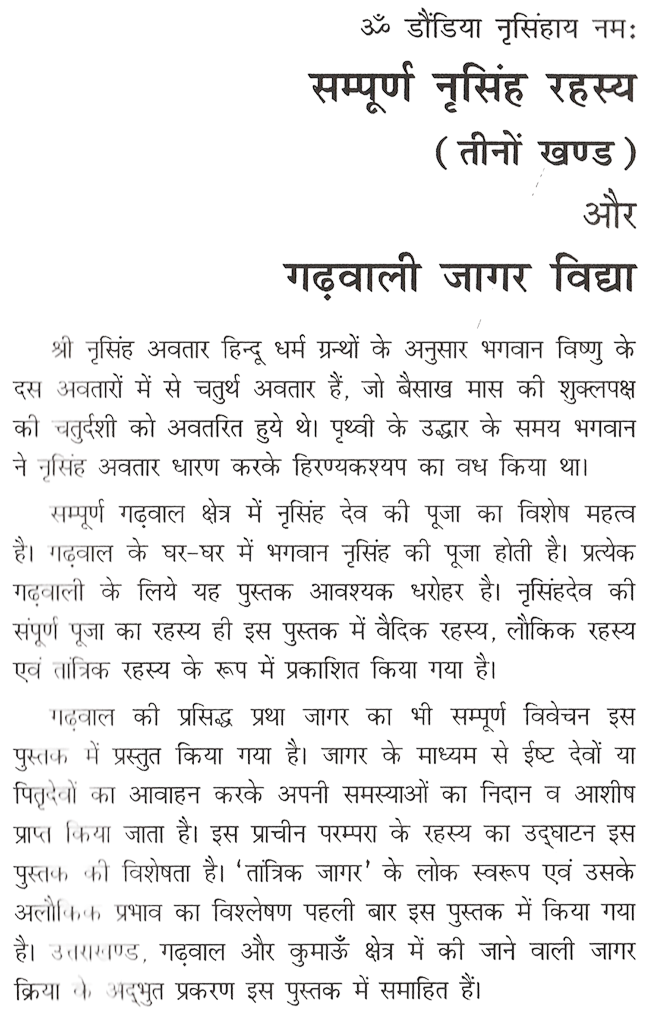 ॐ डौंडिया नृसिंहाय नम:
सम्पूर्ण नृसिंह रहस्य
( तीनों खण्ड )
और
गढ़वाली जागर विद्या
श्री नृसिंह अवतार हिन्दू धर्म ग्रन्थों के अनुसार भगवान विष्णु के
दस अवतारों में से चतुर्थ अवतार हैं, जो बैसाख मास की शुक्लपक्ष
की चतुर्दशी को अवतरित हुये थे। पृथ्वी के उद्धार के समय भगवान
ने नृसिंह अवतार धारण करके हिरण्यकश्यप का वध किया था।
सम्पूर्ण गढ़वाल क्षेत्र में नृसिंह देव की पूजा का विशेष महत्व
है। गढ़वाल के घर-घर में भगवान नृसिंह की पूजा होती है। प्रत्येक
गढ़वाली के लिये यह पुस्तक आवश्यक धरोहर है। नृसिंहदेव की
संपूर्ण पूजा का रहस्य ही इस पुस्तक में वैदिक रहस्य, लौकिक रहस्य
एवं तांत्रिक रहस्य के रूप में प्रकाशित किया गया है।
गढ़वाल की प्रसिद्ध प्रथा जागर का भी सम्पूर्ण विवेचन इस
पुस्तक में प्रस्तुत किया गया है। जागर के माध्यम से ईष्ट देवों या
पितृदेवों का आवाहन करके अपनी समस्याओं का निदान व आशीष
प्राप्त किया जाता है। इस प्राचीन परम्परा के रहस्य का उद्‌घाटन इस
पुस्तक की विशेषता है। ‘तांत्रिक जागर’ के लोक स्वरूप एवं उसके
अलौकिक प्रभाव का विश्लेषण पहली बार इस पुस्तक में किया गया
है। उत्तराखण्ड, गढ़वाल और कुमाऊँ क्षेत्र में की जाने वाली जागर
क्रिया के अद्‌भुत प्रकरण इस पुस्तक में समाहित हैं।